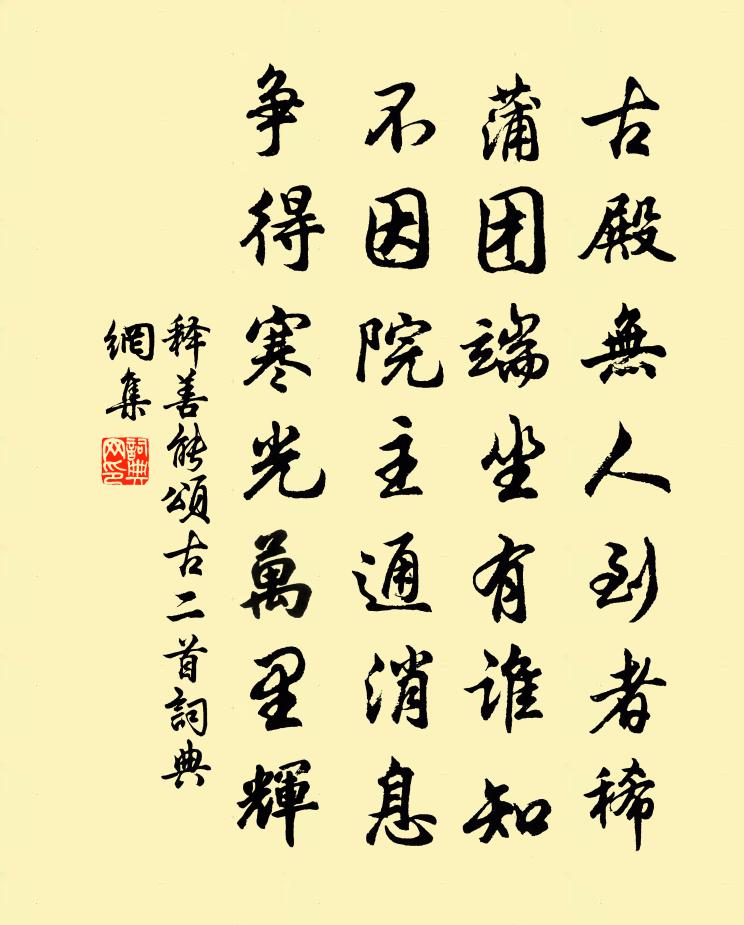 古殿無人到者稀
蒲团端坐有谁知
不因院主通消息
争得寒光萬里輝
释善能頌古二首詞典
網集
詞典
网印